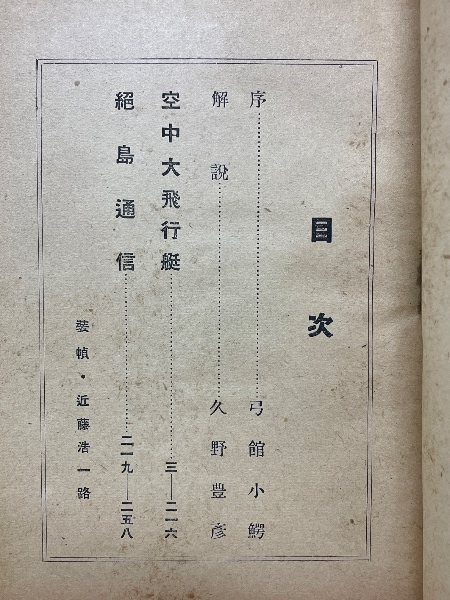 目次
序……………………弓館小鰐
解説……………………久野豊彦
空中大飛行艇……………………三―二一六
絕島通信……………………二一九―二五八
裝幀・近藤浩一路